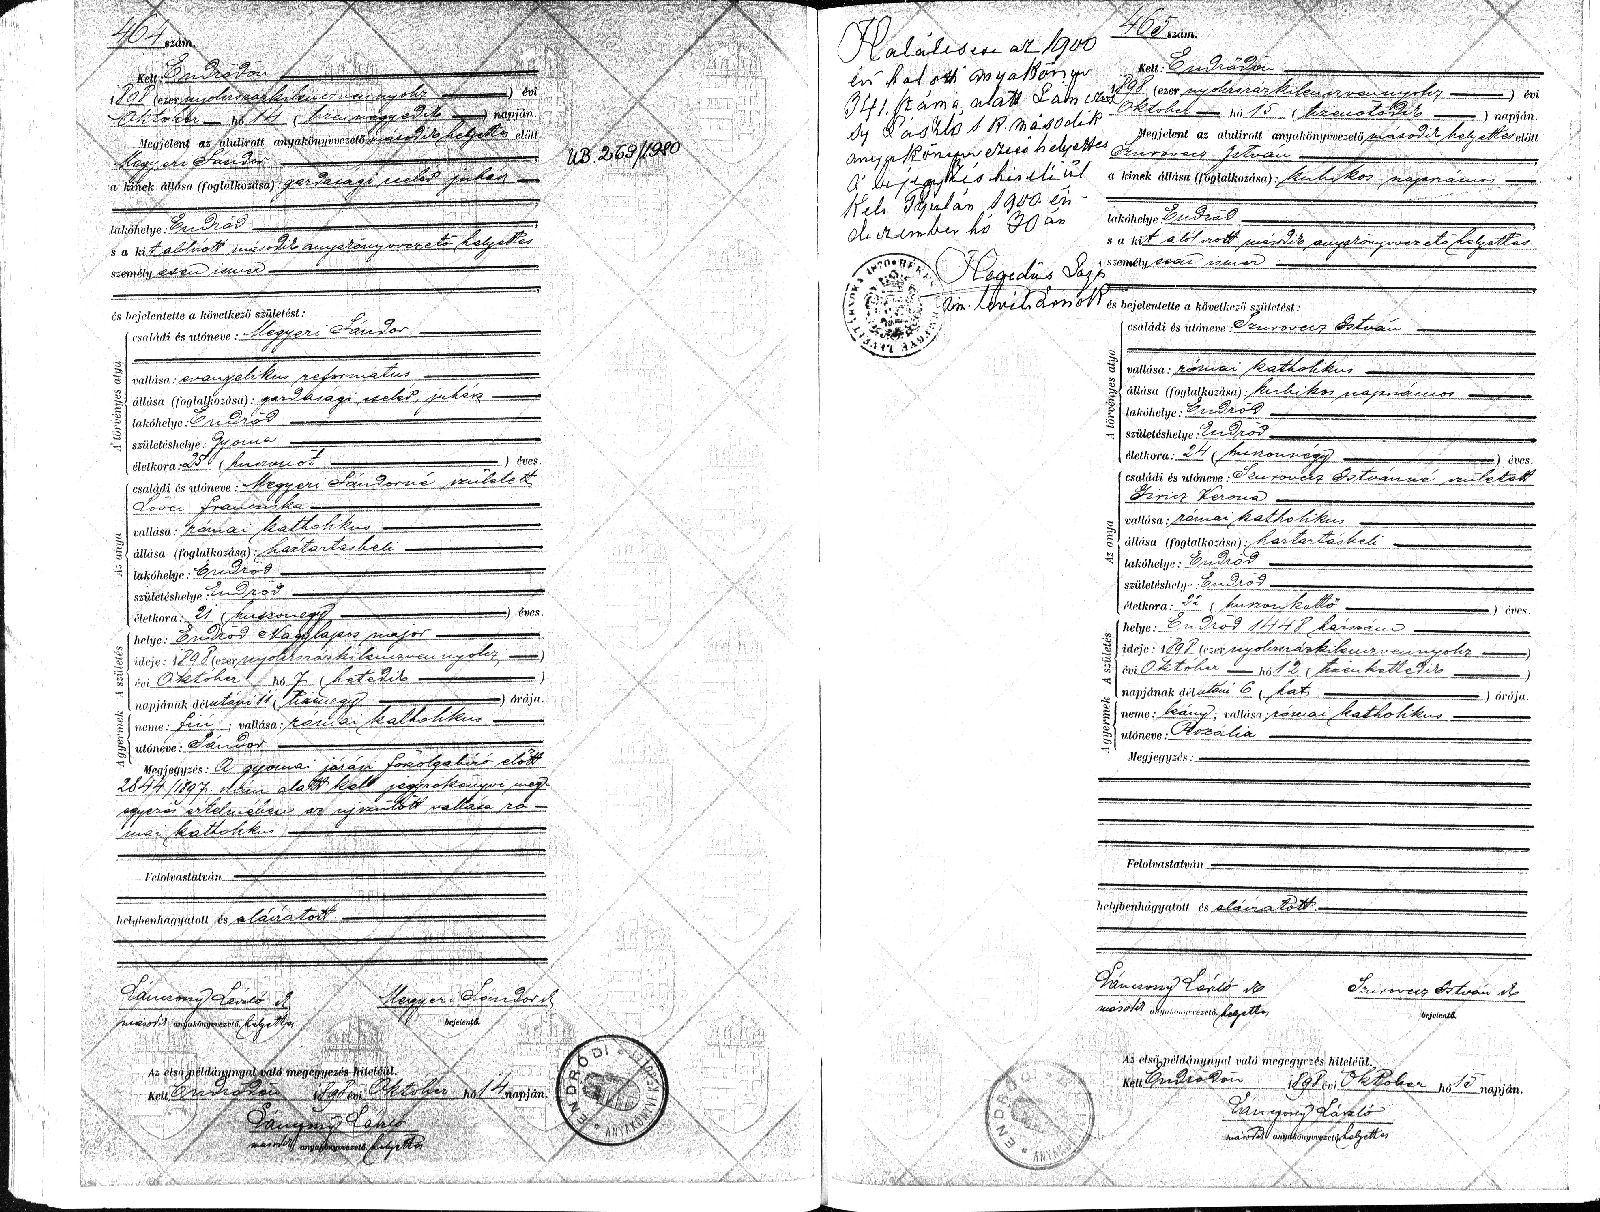 464 szám.
Kelt: Endrődön
1898 (ezer nyolczszázkilenczvennyolcz) évi
Oktober hó 14 (tizennegyedik) napján.
Megjelent az alulirott anyakönyvezető második helyettes előtt
Megyeri Sándor
a kinek állása (foglalkozása): gazdasági cseléd juhász
lakóhelye: Endrőd
s a kit alulirott második anyakönyvvezető helyettes
személyesen ismer
és bejelentette a következő születést:
A törvényes atya
családi és utóneve: Megyeri Sándor
vallása: evangelikus reformatus
állása (foglalkozása): gazdasági cseléd juhász
lakóhelye: Endrőd
születéshelye: Gyoma
életkora: 25 (huszonöt) éves.
Az anya
családi és utóneve: Megyeri Sándorné született
Franciska
vallása: római katholikus
állása (foglalkozása): háztartásbeli
lakóhelye: Endrőd
születéshelye: Endrőd
életkora: 21 (huszonegy) éves.
A születés
helye: Endrőd Nagylapos major
ideje: 1898 (ezer nyolczszázkilenczvennyolcz)
évi Október hó 7 (hetedik)
napjának délutáni 11 (tizenegy) órája.
A gyermek
neme: fiú; vallása: római katholikus
utóneve: Sándor
Megjegyzés: A gyomai járási főszolgabiró előtt
2844/1897. szám alatt kelt jegyzőkönyvi meg-
egyezés értelmében az ujszülött vallása ró-
mai katholikus
Felolvastatván
helybenhagyatott és aláiratott
Lánczony László sk
második anyakönyvvezető helyettes
Megyeri Sándor sk
bejelentő.
Az első példánynyal való megegyezés hiteléül.
Kelt Endrődön 1898 évi Oktober hó 14 napján.
Lánczony László
második anyakönyvvezető helyettes
ENDRŐDI
UB. 269/1980
Halálesete az 1900
évi halotti anyakönyv
341. száma alatt
László s. k. második
anyakönyvvezető helyettes
A bejegyzés hiteléül
Kelt Gyulán 1900 évi
deczember hó 30 án
Hegedüs
levéltárnok
465 szám.
Kelt: Endrődön
1898 (ezer nyolczszázkilenczvennyolcz) évi
Oktober hó 15 (tizenötödik) napján.
Megjelent az alulirott anyakönyvezető második helyettes előtt
Szurovecz István
a kinek állása (foglalkozása): kubikos napszámos
lakóhelye: Endrőd
s a kit alól irott második anyakönyvvezető helyettes
személyesen ismer
és bejelentette a következő születést:
A törvényes atya
családi és utóneve: Szurovecz István
vallása: római katholikus
állása (foglalkozása): kubikos napszámos
lakóhelye: Endrőd
születéshelye: Endrőd
életkora: 24 (huszonnégy) éves.
Az anya
családi és utóneve: Szurovecz Istvánné született
Verona
vallása: római katholikus
állása (foglalkozása): háztartásbeli
lakóhelye: Endrőd
születéshely: Endrőd
életkora: 22 (huszonkettő) éves.
A születés
helye: Endrőd 1448 házszám
ideje: 1898 (ezer nyolczszázkilenczvennyolcz)
évi Oktober hó 12 (tizenkettedik)
napjának délutáni 6 (hat) órája.
A gyermek
neme: leány; vallása: római katholikus
utóneve: Rozália
Megjegyzés:
Felolvastatván
helybenhagyatott és aláiratott
Lánczony László sk
második anyakönyvvezető, helyettes
Szurovecz István sk
bejelentő.
Az első példánynyal való megegyezés hiteléül.
Kelt Endrődön 1898 évi Oktober hó 15 napján.
Lánczony László
második anyakönyvvezető, helyettes
ENDRŐDI